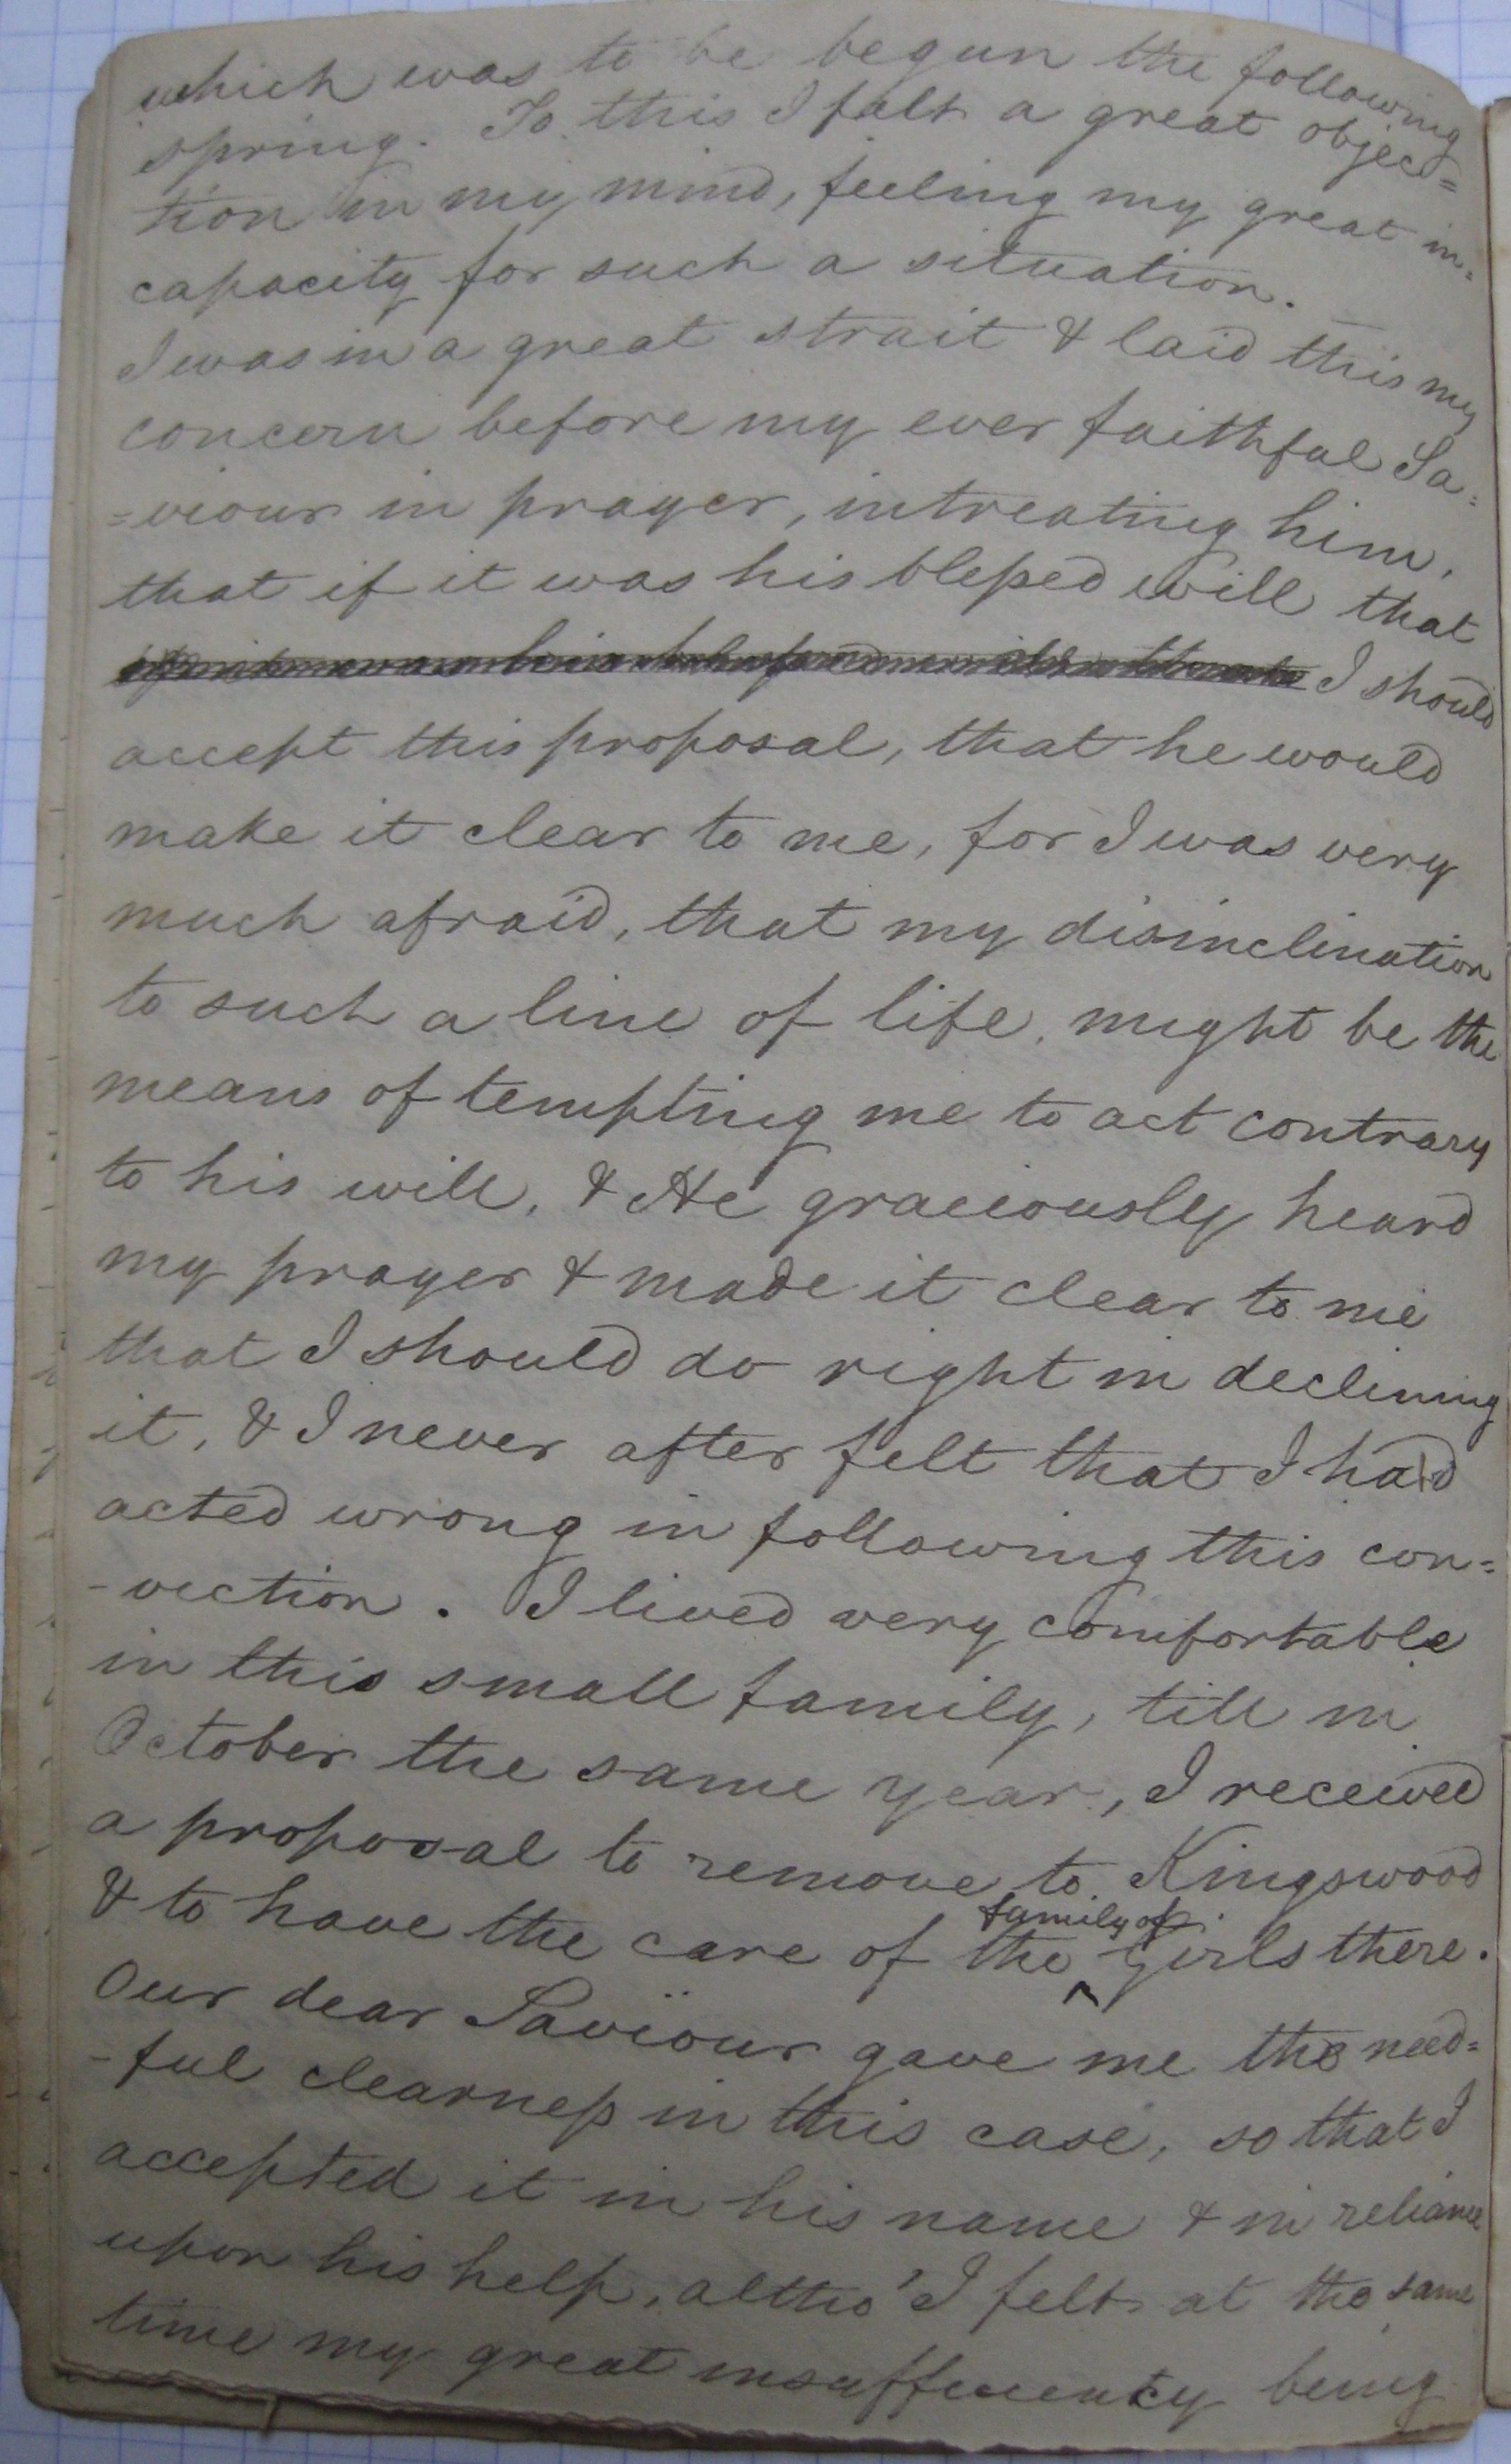 which was to be begun the following
spring. To this I felt a great objec=
tion in my mind, feeling my great in=
capacity for such a situation.
I was in a great strait & laid this my
concern before my ever faithful Sa=
=viour in prayer, intreating him,
that if it was his blessed will that
I should
accept this proposal, that he would
make it clear to me, for I was very
much afraid, that my disinclination
to such a line of life, might be the
means of tempting me to act contrary
to his will, & He graciously heard
my prayer & made it clear to me
that I should do right in declining
it, & I never after felt that I had
acted wrong in following this con=
-viction. I lived very comfortable
in this small family, till in
October the same year, I received
a proposal to remove to Kingswood
& to have the care of the family of Girls there.
Our dear Saviour gave me the need=
-ful clearness in this case, so that I
accepted it in his name & in reliance
upon his help, altho' I felt at the same
time my great insufficiency being